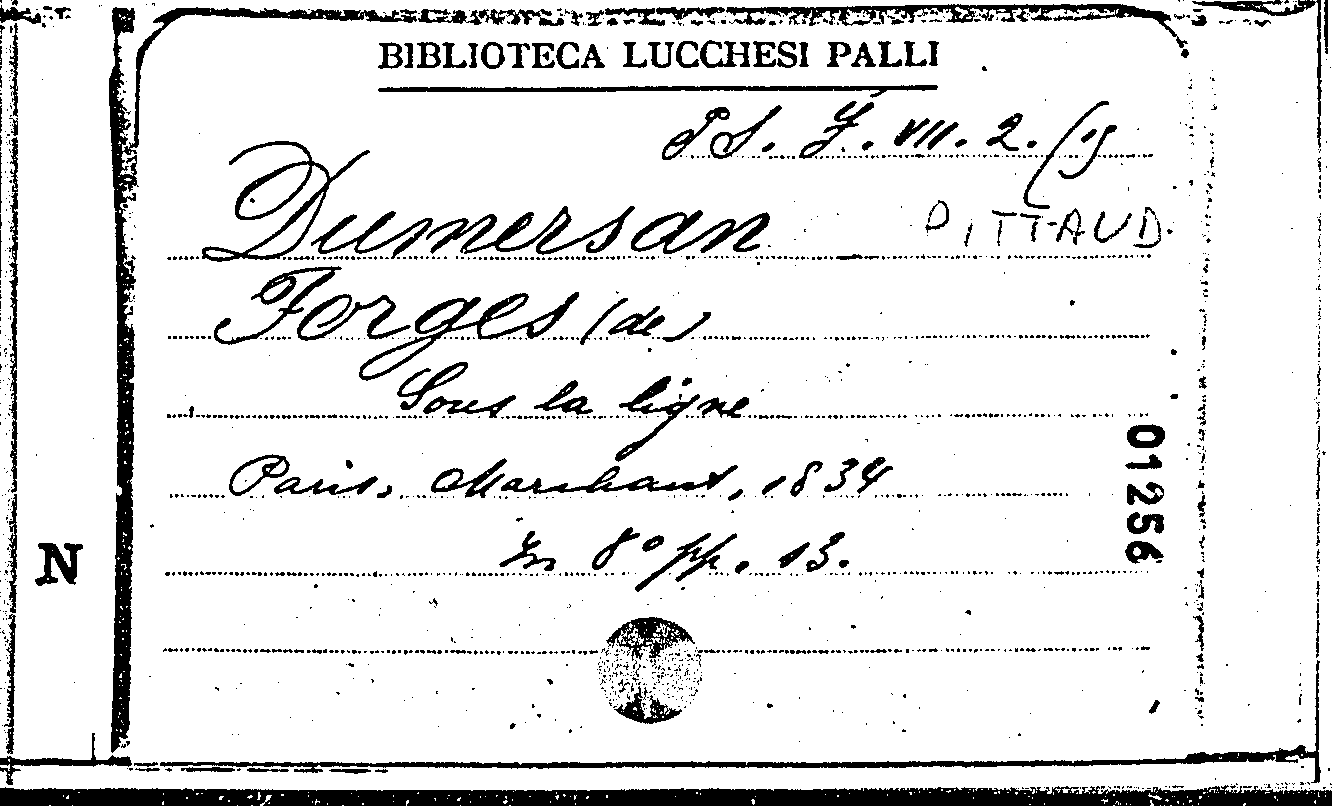 BIBLIOTECA LUCCHESI PALLI
VII. 2.
Dumersan PITTAUD
Forges (de)
Sous la ligne
Paris, Marchant, 1834
In 8° pp. 13.
01256
N